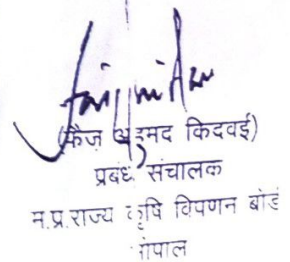 (फैज़ अहमद किदवई)
प्रबंध संचालक
म.प्र.राज्य कृषि विपणन बोर्ड
भोपाल